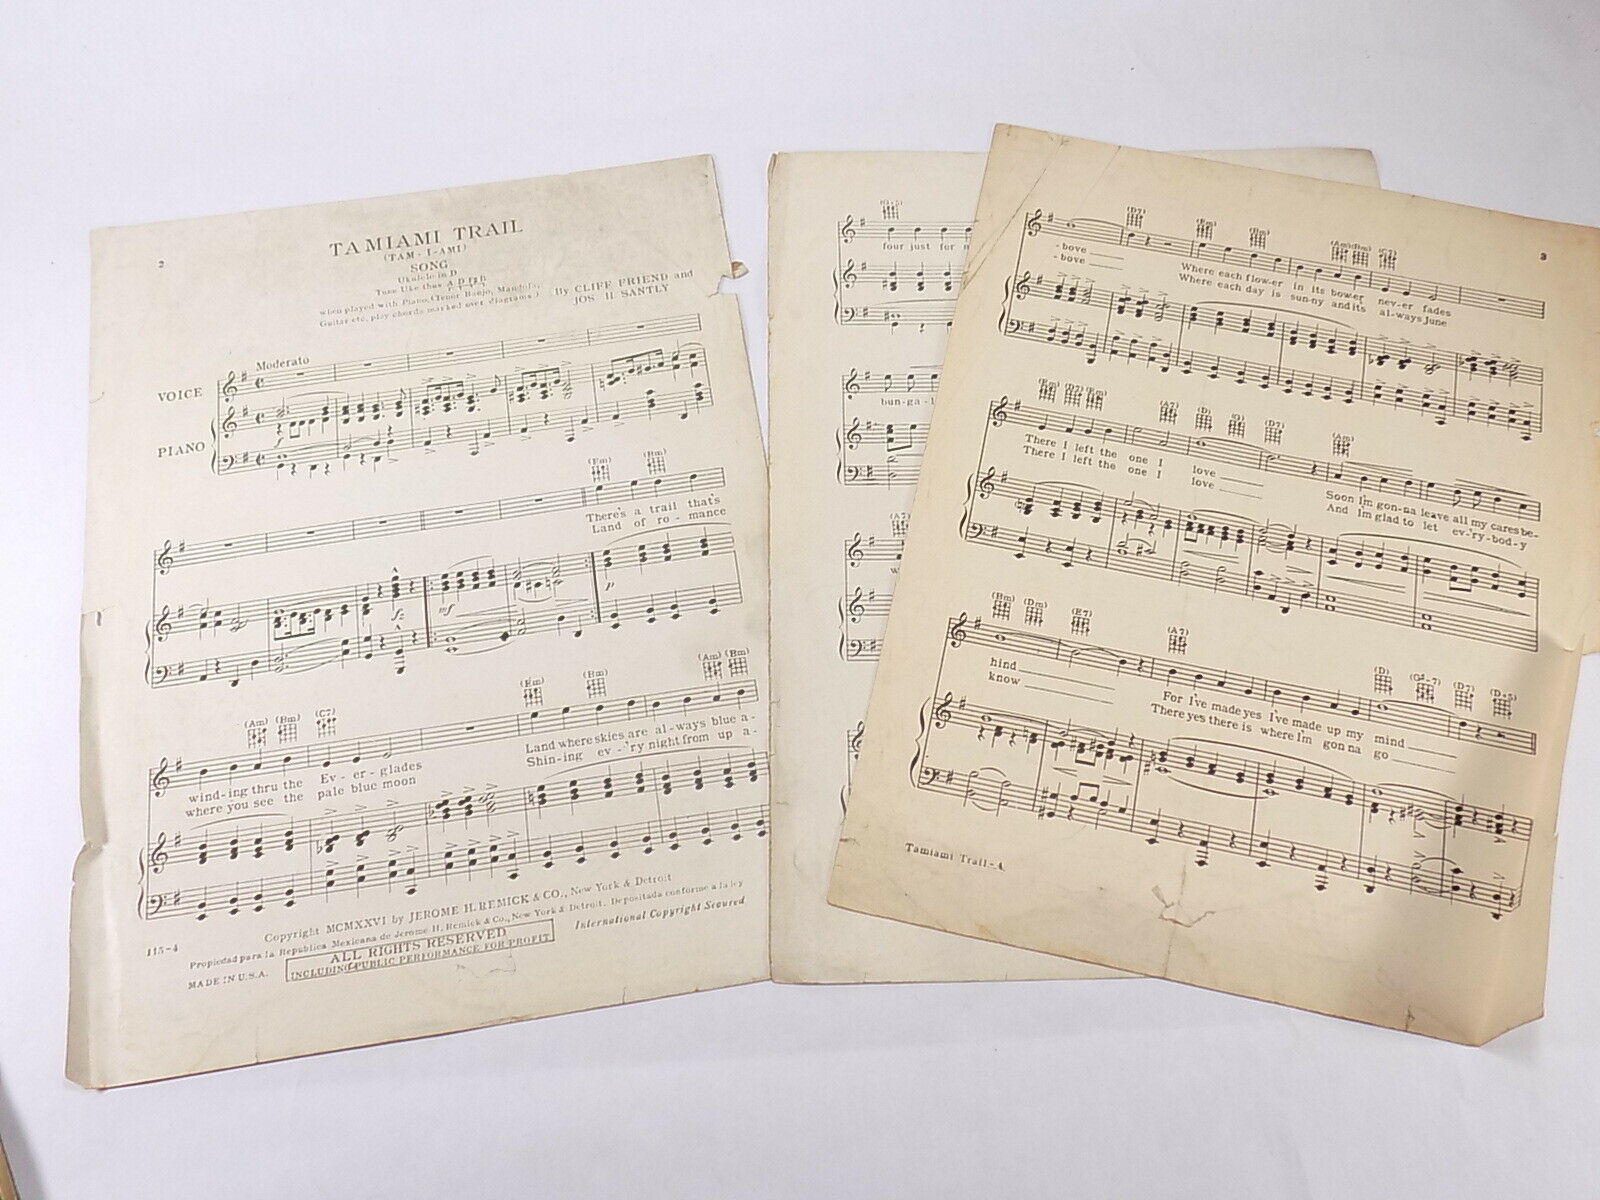 2
TAMIAMI TRAIL
(TAM - I - AMI)
SONG
Ukulele in D
Tune Uke thus A D F# B
when played with Piano, (Tenor Banjo, Mandola,
Guitar etc. play chords marked over diagrams.)
By CLIFF FRIEND and
JOS. H. SANTLY
Moderato
VOICE
PIANO
f
(Em) (Bm)
There's a trail that's
Land of ro - mance
mf
p
(Am) (Bm) (C7) (Em) (Bm) (Am) (Bm)
wind-ing thru the Ev - er - glades Land where skies are al-ways blue a-
where you see the pale blue moon Shin-ing ev-'ry night from up a-
Copyright MCMXXVI by JEROME H. REMICK & CO., New York & Detroit
Propiedad para la Republica Mexicana de Jerome H. Remick & Co., New York & Detroit. Depositada conforme a la ley
115-4
MADE IN U.S.A.
ALL RIGHTS RESERVED
INCLUDING PUBLIC PERFORMANCE FOR PROFIT
International Copyright Secured
four just for
bun-ga-l
(A7)
w
3
(D7) (Em) (Bm) (Am) (Bm) (C7)
-bove Where each flow-er in its bow-er nev-er fades
-bove Where each day is sun-ny and it's al-ways June
(Em) (D7) (Em) (A7) (D) (G) (D7) (Am)
There I left the one I love Soon I'm gon-na leave all my cares be-
There I left the one I love And I'm glad to let ev-'ry-bod-y
(Bm) (Dm) (E7) (A7) (D) (D7) (D+5)
hind For I've made yes I've made up my mind
know There yes there is where I'm gon na go
Tamiami Trail-4